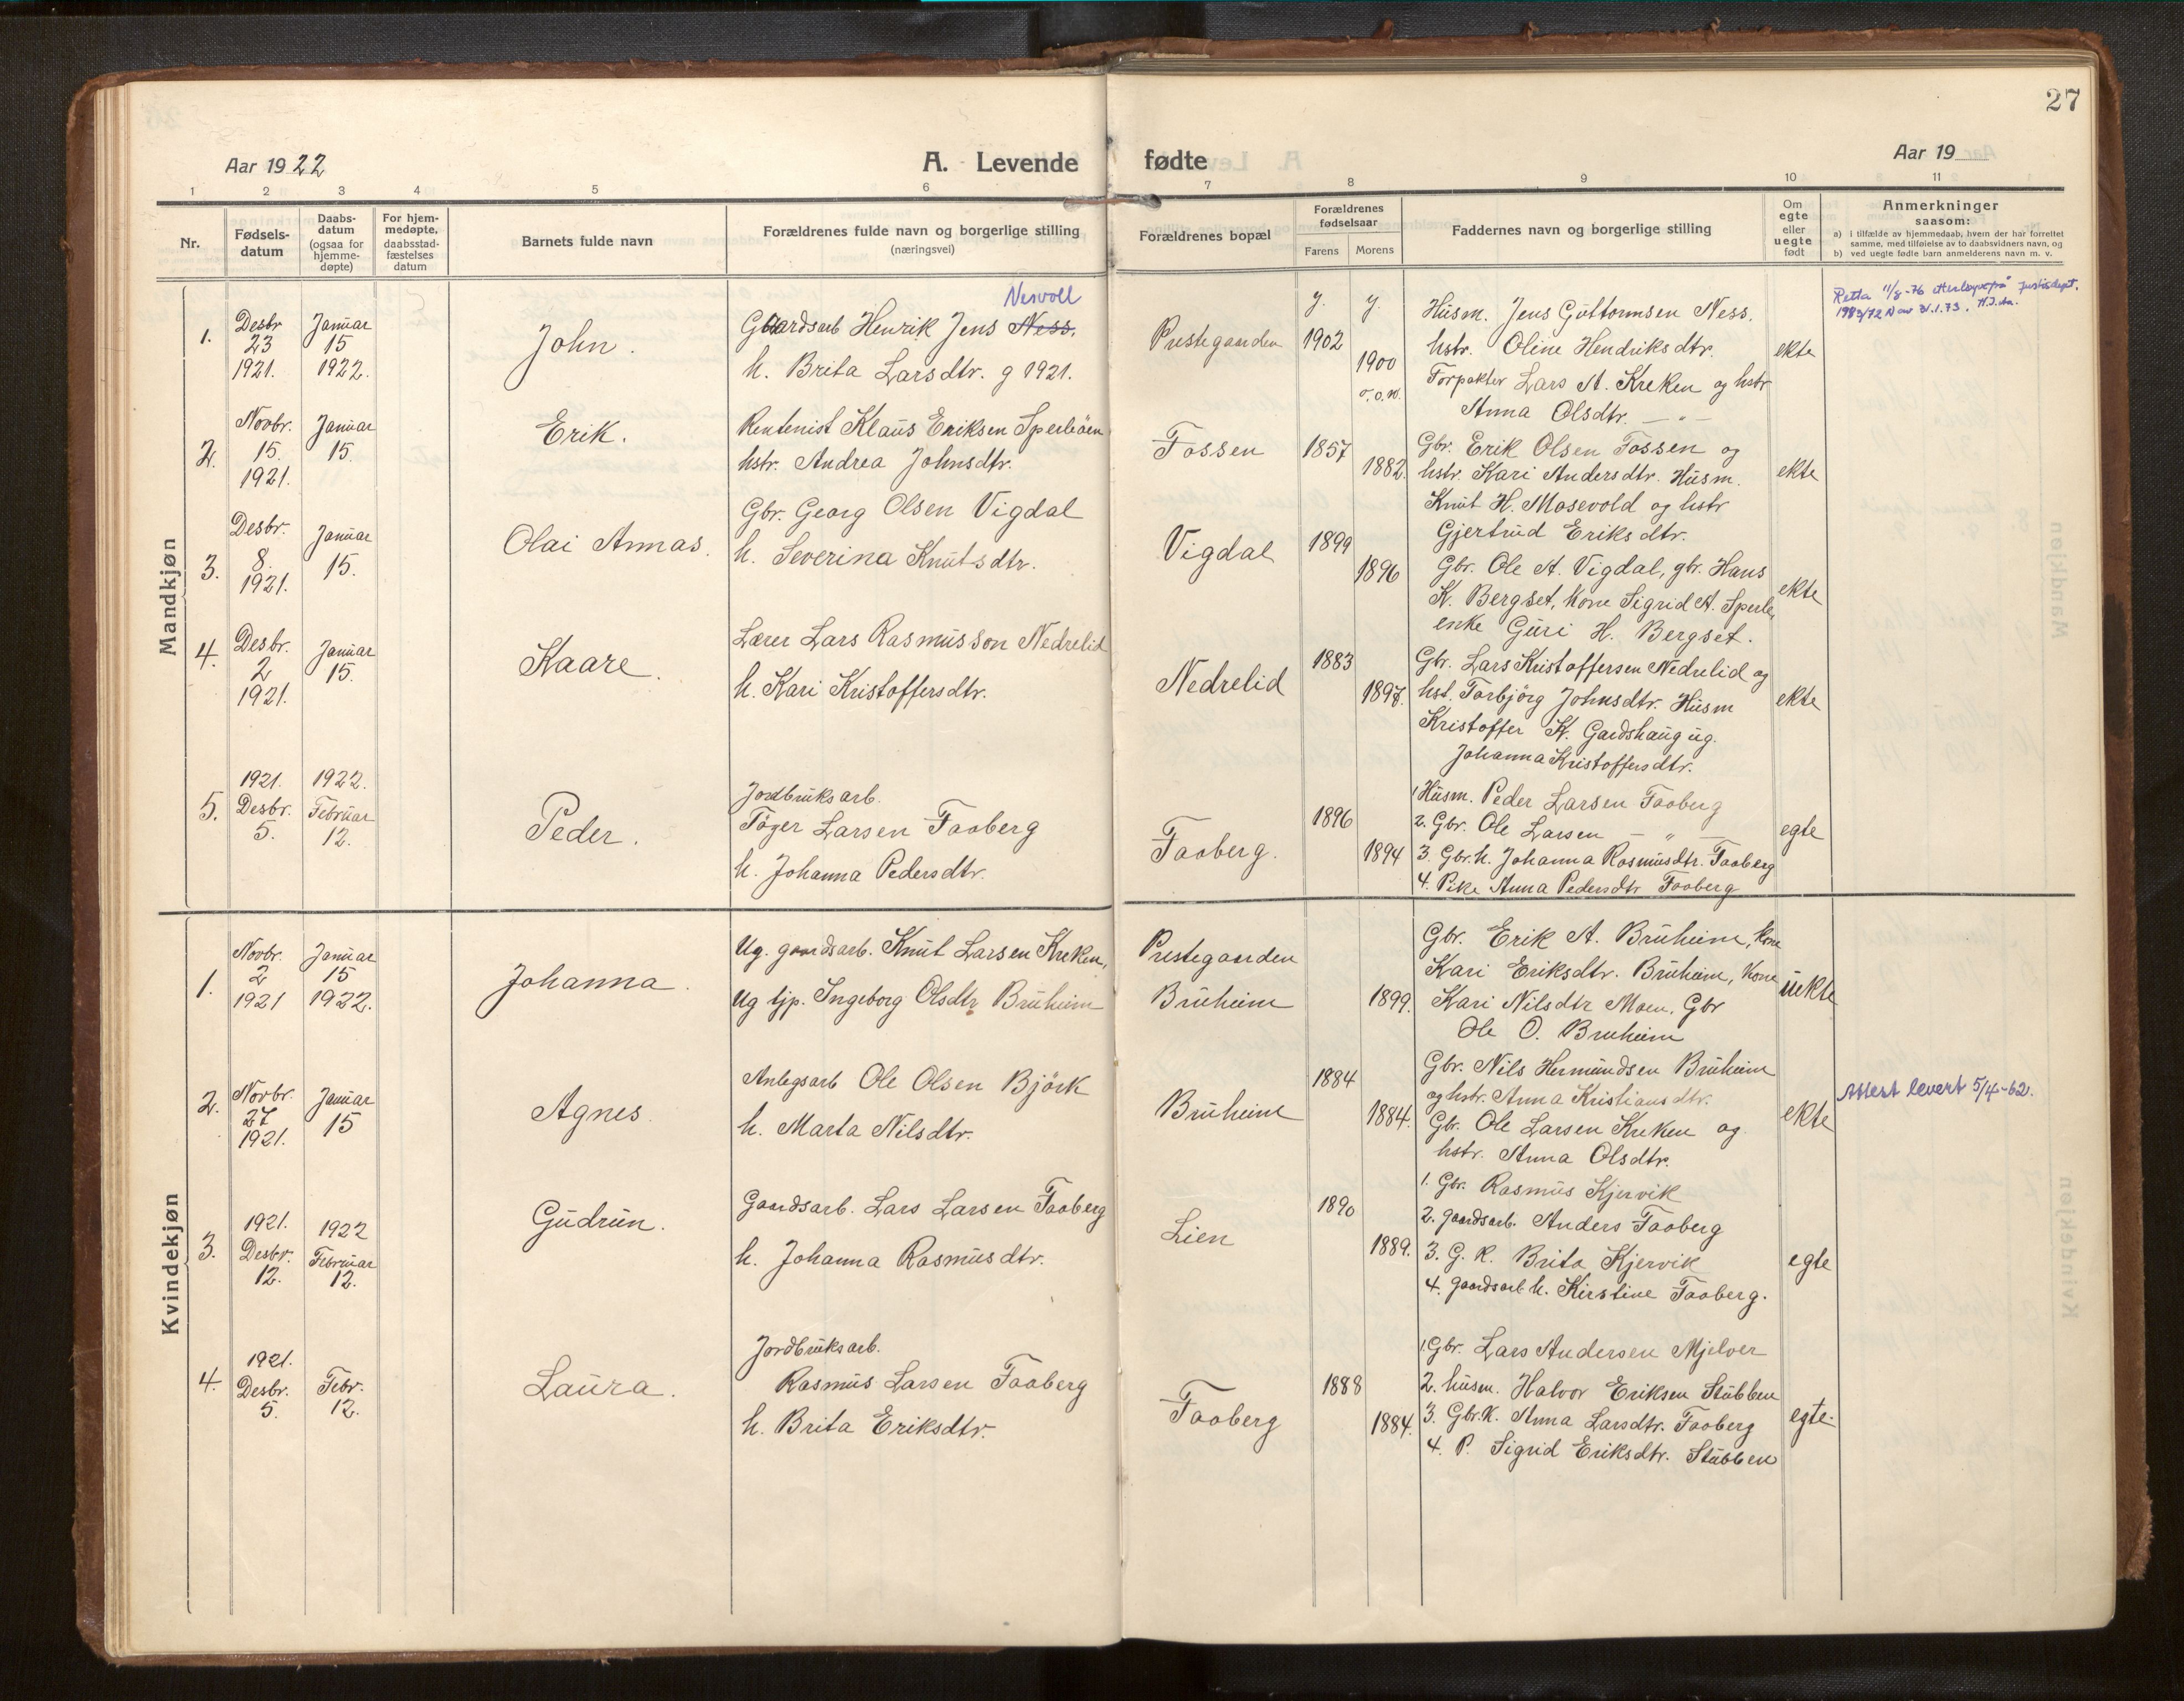 27
Aar 1922
A. Levende fødte
Aar 19
1 2 3 4 5 6 7 8 9 10 11
Nr.
Fødsels-
datum
Daabs-
datum
(ogsaa for
hjemme-
døpte)
For hjem-
medøpte,
daabsstad-
fæstelses
datum
Barnets fulde navn
Forældrenes fulde navn og borgerlige stilling
(næringsvei)
Forældrenes bopæl
Forældrenes
fødselsaar
Farens Morens
Faddernes navn og borgerlige stilling
Om
egte
eller
uegte
født
Anmerkninger
saasom:
a) i tilfælde av hjemmedaab, hvem der har forrettet
samme, med tilføielse av to daabsvidners navn, og
b) ved uegte fødte barn anmelderens navn m. v.
Mandkjøn
1.
Desbr
23
1921.
Januar
15
1922.
John.
Nesvoll
Gaardsarb Henrik Jens Ness.
h. Brita Larsdtr. g 1921.
Prestegarden
y.
1902
y.
1900
Husm. Jens Guttormsen Ness.
hstr. Oline Hendriksdtr.
Forpakter Lars A. Kreken og hstr
Anna Olsdtr. — " —
ekte
Retta 11/8-76 etter løyve frå Justisdept.
1983/72 N av 31.1.73.
2.
Novbr.
15.
1921.
Januar
15.
Erik.
Rentenist Klaus Eriksen Sperleöen
hstr. Andrea Johnsdtr.
Fossen
1857
1882.
Gbr. Erik Olsen Fossen og
hstr. Kari Andersdtr. Husm.
Knut H. Mosevold og hstr
Gjertrud Eriksdtr.
ekte
3.
Desbr.
8.
1921.
Januar
15.
Olai Annas.
Gbr. Georg Olsen Vigdal
h. Severina Knutsdtr.
Vigdal
1899
1896
Gbr. Ole A. Vigdal, gbr. Hans
K. Bergset, kone Sigrid A. Sperle,
enke Guri H. Bergset.
ekte
4.
Desbr.
2
1921.
Januar
15.
Kaare.
Lærer Lars Rasmusson Nedrelid
h. Kari Kristoffersdtr.
Nedrelid
1883
1897.
Gbr. Lars Kristoffersen Nedrelid og
hst. Torbjörg Johnsdtr. Husm
Kristoffer K. Gardshaug ug.
Johanna Kristoffersdtr.
ekte
5.
1921.
Desbr.
5.
1922.
Februar
12.
Peder.
Jordbruksarb.
Töger Larsen Faaberg
h. Johanna Pedersdtr.
Faaberg.
1896
1894
1 Husm. Peder Larsen Faaberg
2. Gbr. Ole Larsen — " —
3. Gbr.h. Johanna Rasmusdtr. Faaberg
4. Pike Anna Pedersdtr Faaberg
egte
Kvindekjøn
1.
Novbr.
2
1921
Januar
15
1922.
Johanna.
Ug. gaardsarb. Knut Larsen Kreken,
Ug tjp. Ingeborg Olsdtr Bruheim
Prestegaarden
Bruheim
1899.
Gbr. Erik A. Bruheim, kone
Kari Eriksdtr. Bruheim, kone
Kari Nilsdtr Moen, Gbr
Ole O. Bruheim
uekte
2.
Novbr.
27
1921.
Januar
15
Agnes.
Anlegsarb Ole Olsen Björk
h. Marta Nilsdtr.
Bruheim
1884
1884.
Gbr. Nils Hermundsen Bruheim
og hstr. Anna Kristiansdtr.
Gbr. Ole Larsen Kreken og
hstr. Anna Olsdtr.
ekte
Attest levert 5/4-62.
3.
1921.
Desbr.
12.
1922
Februar
12.
Gudrun.
Gaardsarb. Lars Larsen Faaberg
h. Johanna Rasmusdtr.
Lien
1890
1889.
1. Gbr. Rasmus Kjervik
2. gaardsarb. Anders Faaberg
3. G. K. Brita Kjervik
4. gaardsarb h. Kirstine Faaberg.
egte
4.
1921.
Desbr.
5.
Febr.
12.
Laura.
Jordbruksarb.
Rasmus Larsen Faaberg
h. Brita Eriksdtr.
Faaberg
1888
1884.
1. Gbr. Lars Andersen Mjelver
2. husm. Halvor Eriksen Stubben
3. Gbr.K. Anna Larsdtr. Faaberg
4. P. Sigrid Eriksdtr. Stubben
egte.